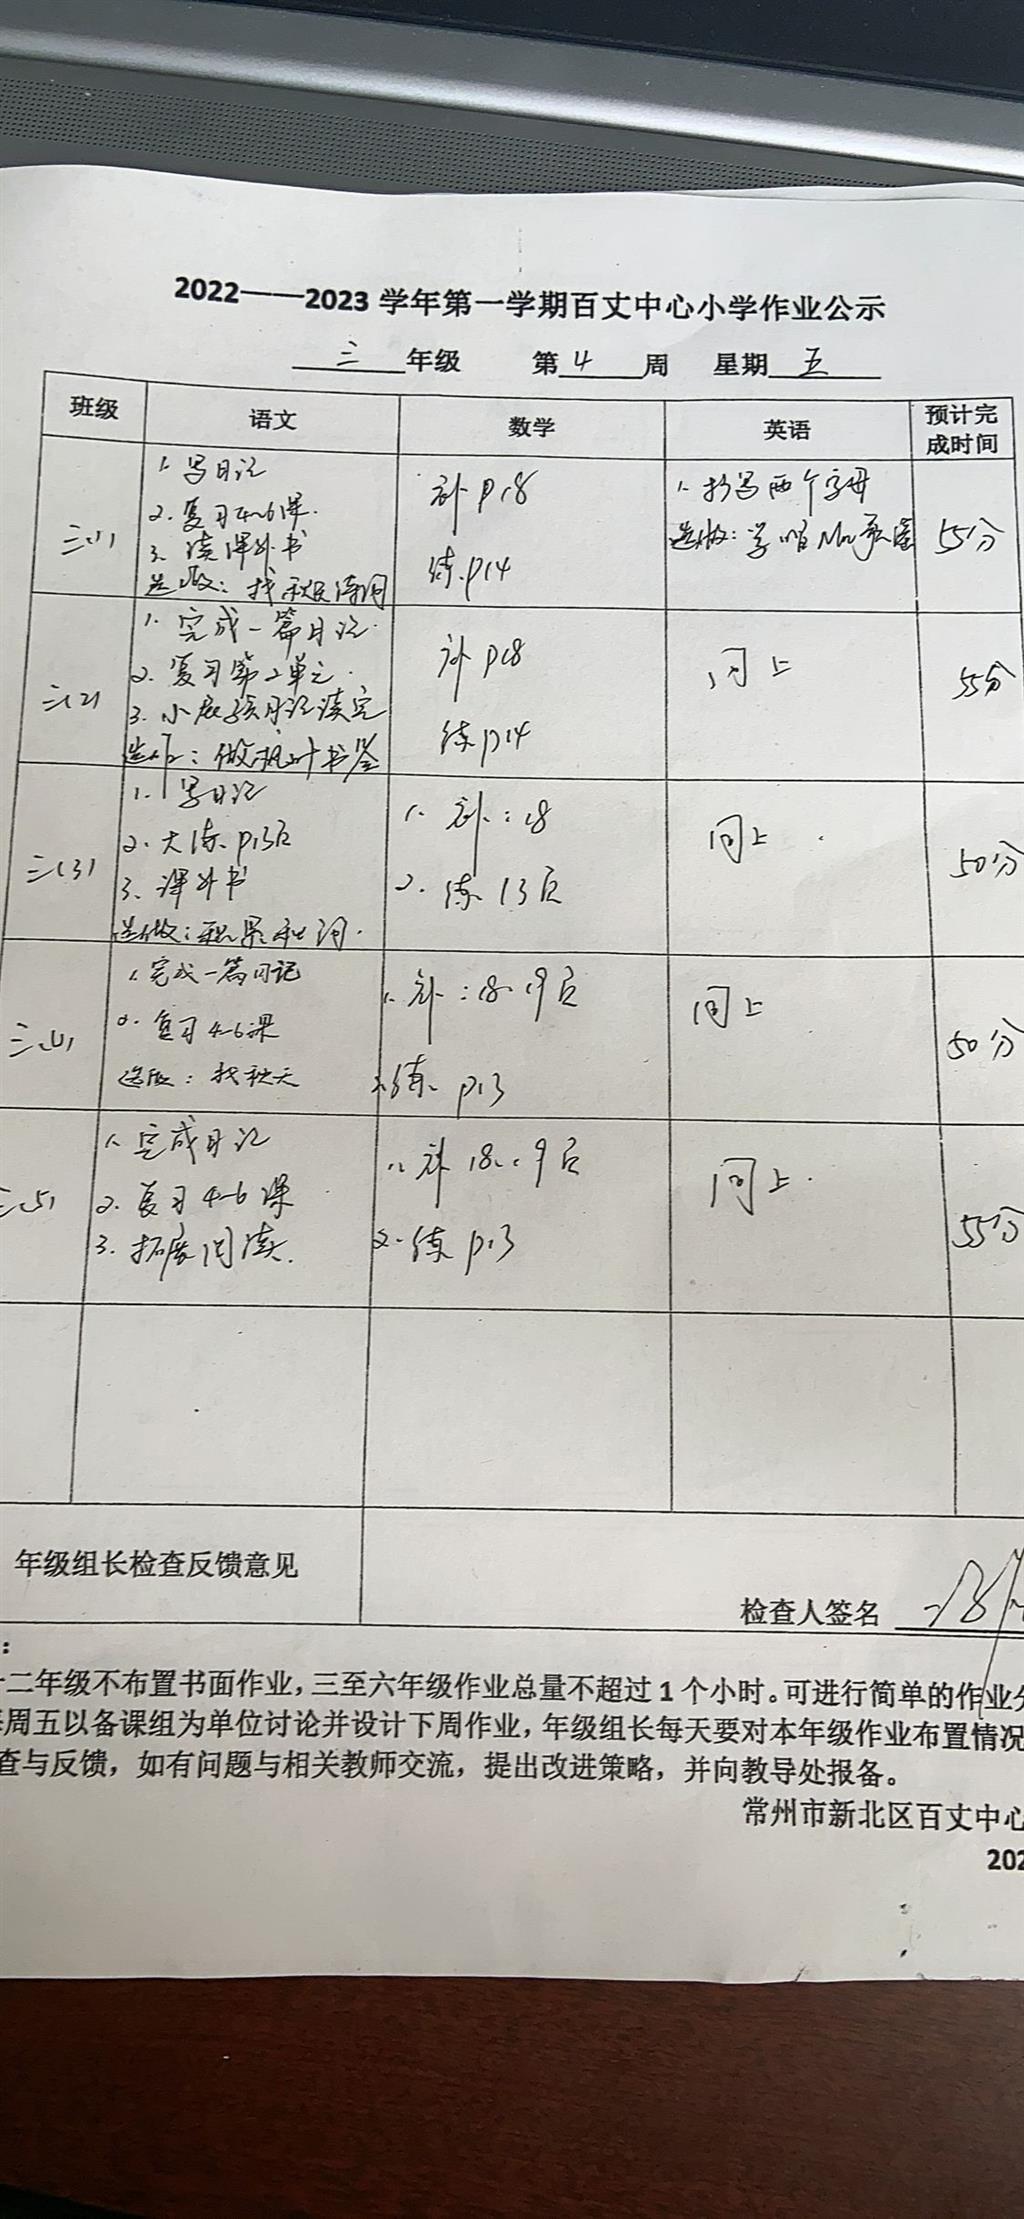 2022——2023 学年第一学期百丈中心小学作业公示
三 年级 第 4 周 星期 五
班级 语文 数学 英语 预计完成时间
三(1)
1. 写日记
2. 复习4-6课.
3. 读课外书
选做: 找秋天诗词
补 P18
练 P14
1. 抄写两个字母
选做: 学唱
55分
三(2)
1. 完成一篇日记.
2. 复习第2单元.
3. 小屁孩日记读完
选做: 做枫叶书签
补 P18
练 P14
同上
55分
三(3)
1. 写日记
2. 大练 P13页
3. 课外书
选做: 积累秋词.
1. 补: 18
2. 练 13页
同上
50分
三(4)
1. 完成一篇日记
2. 复习 4-6课
选做: 找秋天
1. 补: 18、19页
2. 练 P13
同上
50分
三(5)
1. 完成日记
2. 复习 4-6 课
3. 拓展阅读.
1. 补 18、19页
2. 练 P13
同上.
55分
年级组长检查反馈意见
检查人签名
:
二年级不布置书面作业，三至六年级作业总量不超过 1 个小时。可进行简单的作业
周五以备课组为单位讨论并设计下周作业，年级组长每天要对本年级作业布置情况
查与反馈，如有问题与相关教师交流，提出改进策略，并向教导处报备。
常州市新北区百丈中心
202